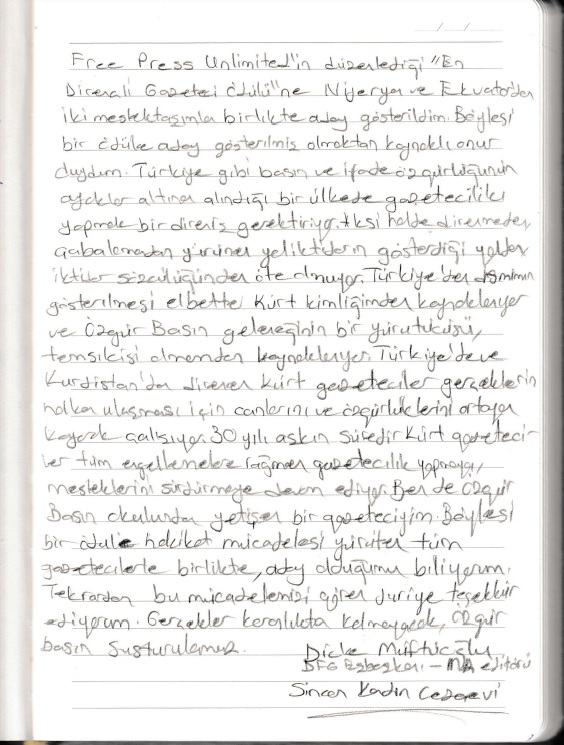 / /
Free Press Unlimited'in düzenlediği "En
Dirençli Gazeteci Ödülü"ne Nijerya ve Ekvator'dan
iki meslektaşımla birlikte aday gösterildim. Böylesi
bir ödüle aday gösterilmiş olmaktan kaynaklı onur
duydum. Türkiye gibi basın ve ifade özgürlüğünün
ayaklar altına alındığı bir ülkede gazetecilik
yapmak bir direniş gerektiriyor. Aksi halde direnmeden,
çabalamadan yürünen yol iktidarın gösterdiği yolda
iktidar sözcülüğünden öte olmuyor. Türkiye'den ismimin
gösterilmesi elbette Kürt kimliğimden kaynaklanıyor
ve Özgür Basın geleneğinin bir yürütücüsü,
temsilcisi olmamdan kaynaklanıyor. Türkiye'de ve
Kurdistan'da direnen kürt gazeteciler gerçeklerin
halka ulaşması için canlarını ve özgürlüklerini ortaya
koyarak çalışıyor. 30 yılı aşkın süredir Kürt gazeteci-
ler tüm engellemelere rağmen gazetecilik yapmaya,
mesleklerini sürdürmeye devam ediyor. Ben de Özgür
Basın okulunda yetişen bir gazeteciyim. Böylesi
bir ödüle hakikat mücadelesi yürüten tüm
gazetecilerle birlikte, aday olduğumu biliyorum.
Tekrardan bu mücadelemizi gören juriye teşekkür
ediyorum. Gerçekler karanlıkta kalmayacak, özgür
basın susturulamaz.
Dicle Müftüoğlu
DFG Eşbaşkanı - MA editörü
Sincan Kadın Cezaevi